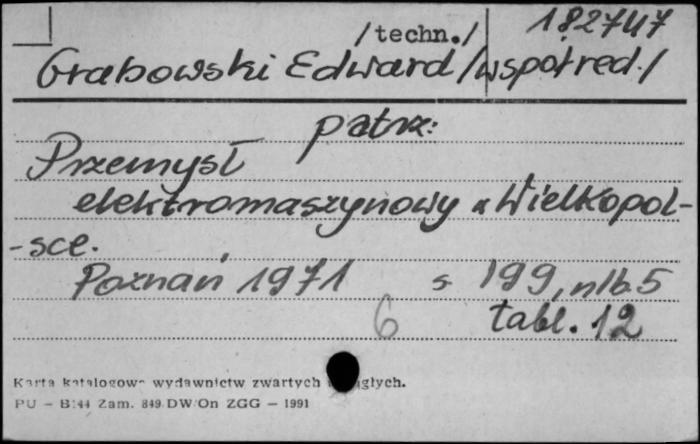 182747
/techn./
Grabowski Edward /współred./
patrz:
Przemysł
elektromaszynowy w Wielkopol-
-sce.
Poznań 1971 s 199, nlb. 5
6 tabl. 12
Karta katalogowa wydawnictw zwartych ciągłych.
PU – B/44 Zam. 849 DW/On ZGG – 1991